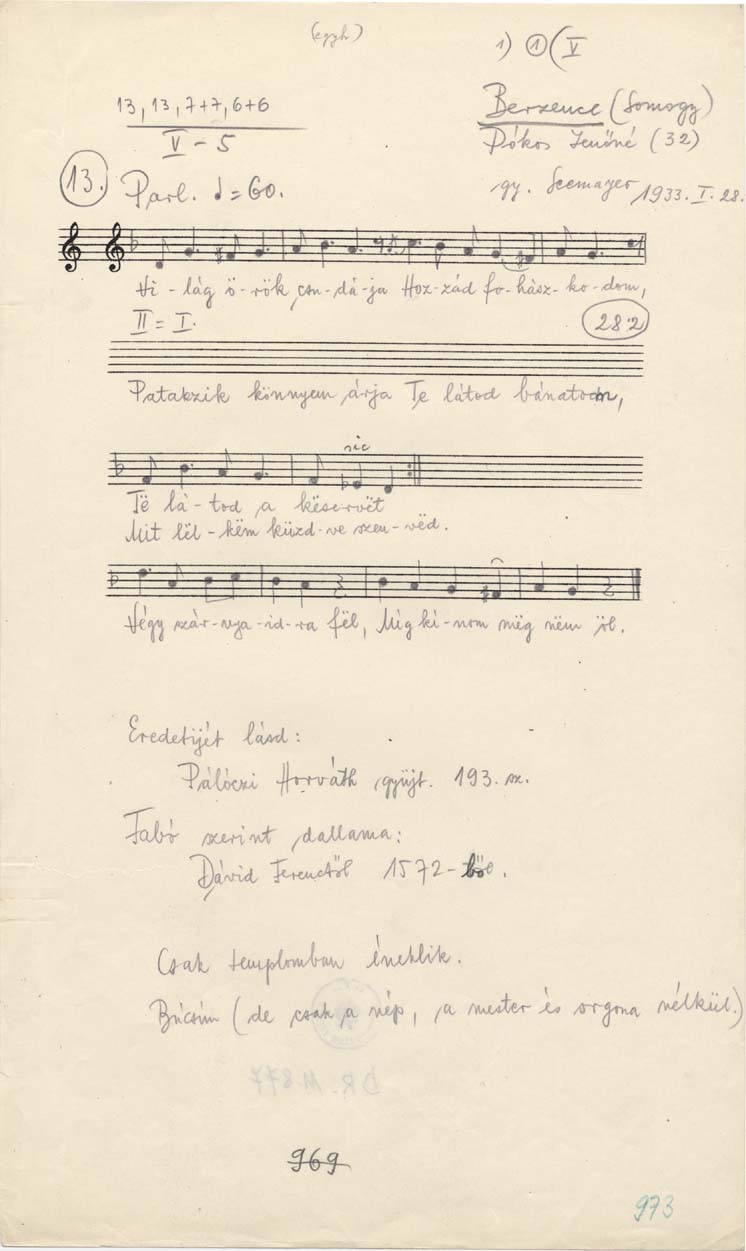 (egyh)
1) ① (V
13, 13, 7+7, 6+6
V - 5
Berzence (Somogy)
Pókos Jenőné (32)
gy. Seemayer 1933. I. 28.
13. Parl. = 60.
Vi - lág ö - rök csu - dá - ja Hoz - zád fo - hász - ko - dom,
II = I.
282
Patakzik könnyem árja Te látod bánatom,
sic
Të lá - tod a këservët
Mit lël - këm küzd - ve szen - vëd.
Végy szár - nya - id - ra fël, Míg kí - nom mëg nëm öl.
Eredetijét lásd:
Pálóczi Horváth gyüjt. 193. sz.
Fabó szerint dallama:
Dávid Ferenctől 1572-ből.
Csak templomban éneklik.
Búcsún (de csak a nép, a mester és orgona nélkül.)
DR. M 877
969
973